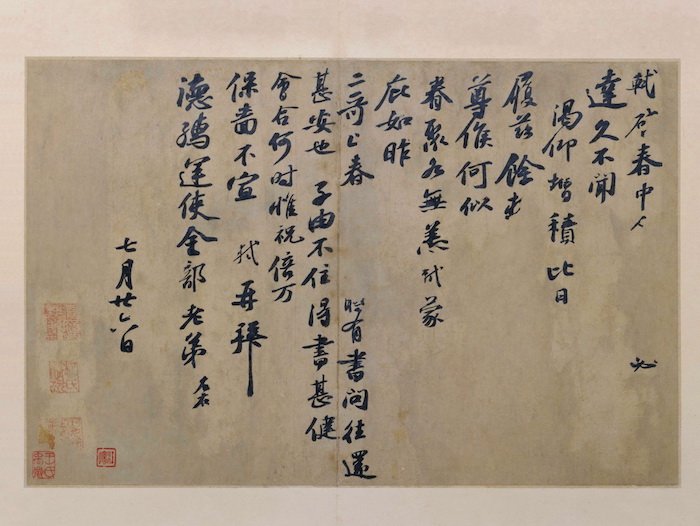 軾啓春中人 必
達久不聞
渴仰增積比日
履茲餘
尊候何似
眷聚各無恙軾蒙
庇如昨
二哥上春 有書問往還
甚安也 子由不住得書甚健
會合何時惟祝倍万
保嗇不宣 軾再拜
德孺運使金部老弟
七月廿六日